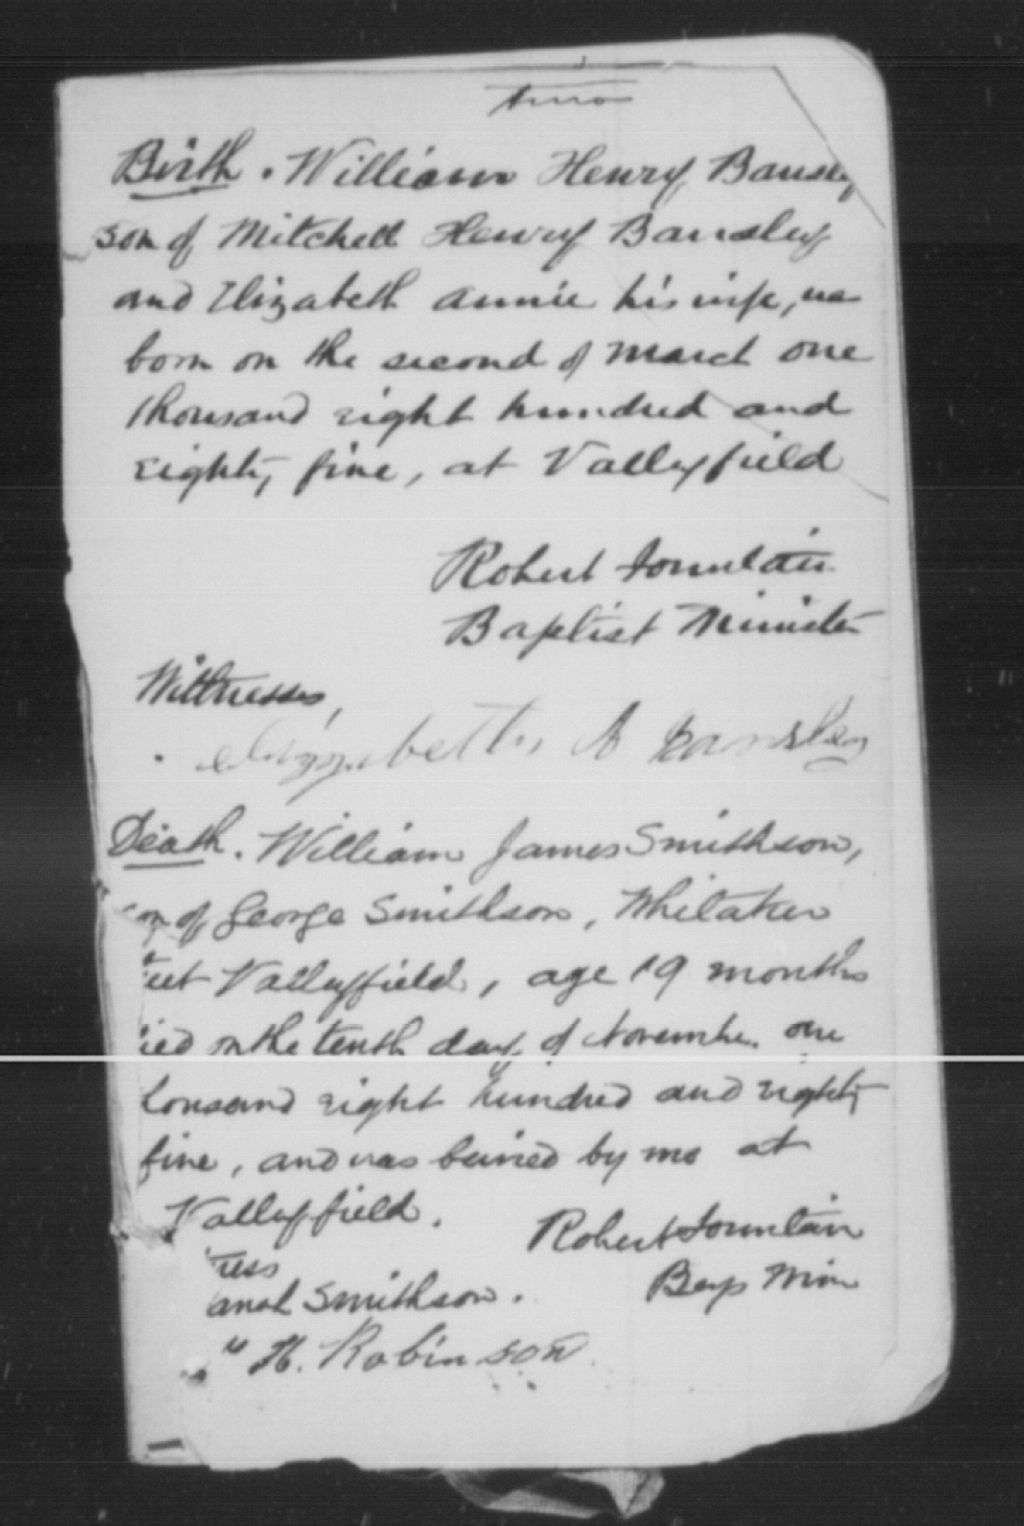 two
Birth. William Henry Bansley
son of Mitchell Henry Bansley
and Elizabeth Annie his wife, was
born on the second of March one
thousand eight hundred and
eighty five, at Valleyfield
Robert Fountain
Baptist Minister
Wittnesses,
elizzabetth A Bansley
Death. William James Smithson,
son of George Smithson, Whitaker
eet Valleyfield, age 19 months
ied on the tenth day of November one
housand eight hundred and eighty
five, and was buried by me at
Valleyfield.
Robert Fountain
ess
Bap Min
anah Smithson.
" H. Robinson